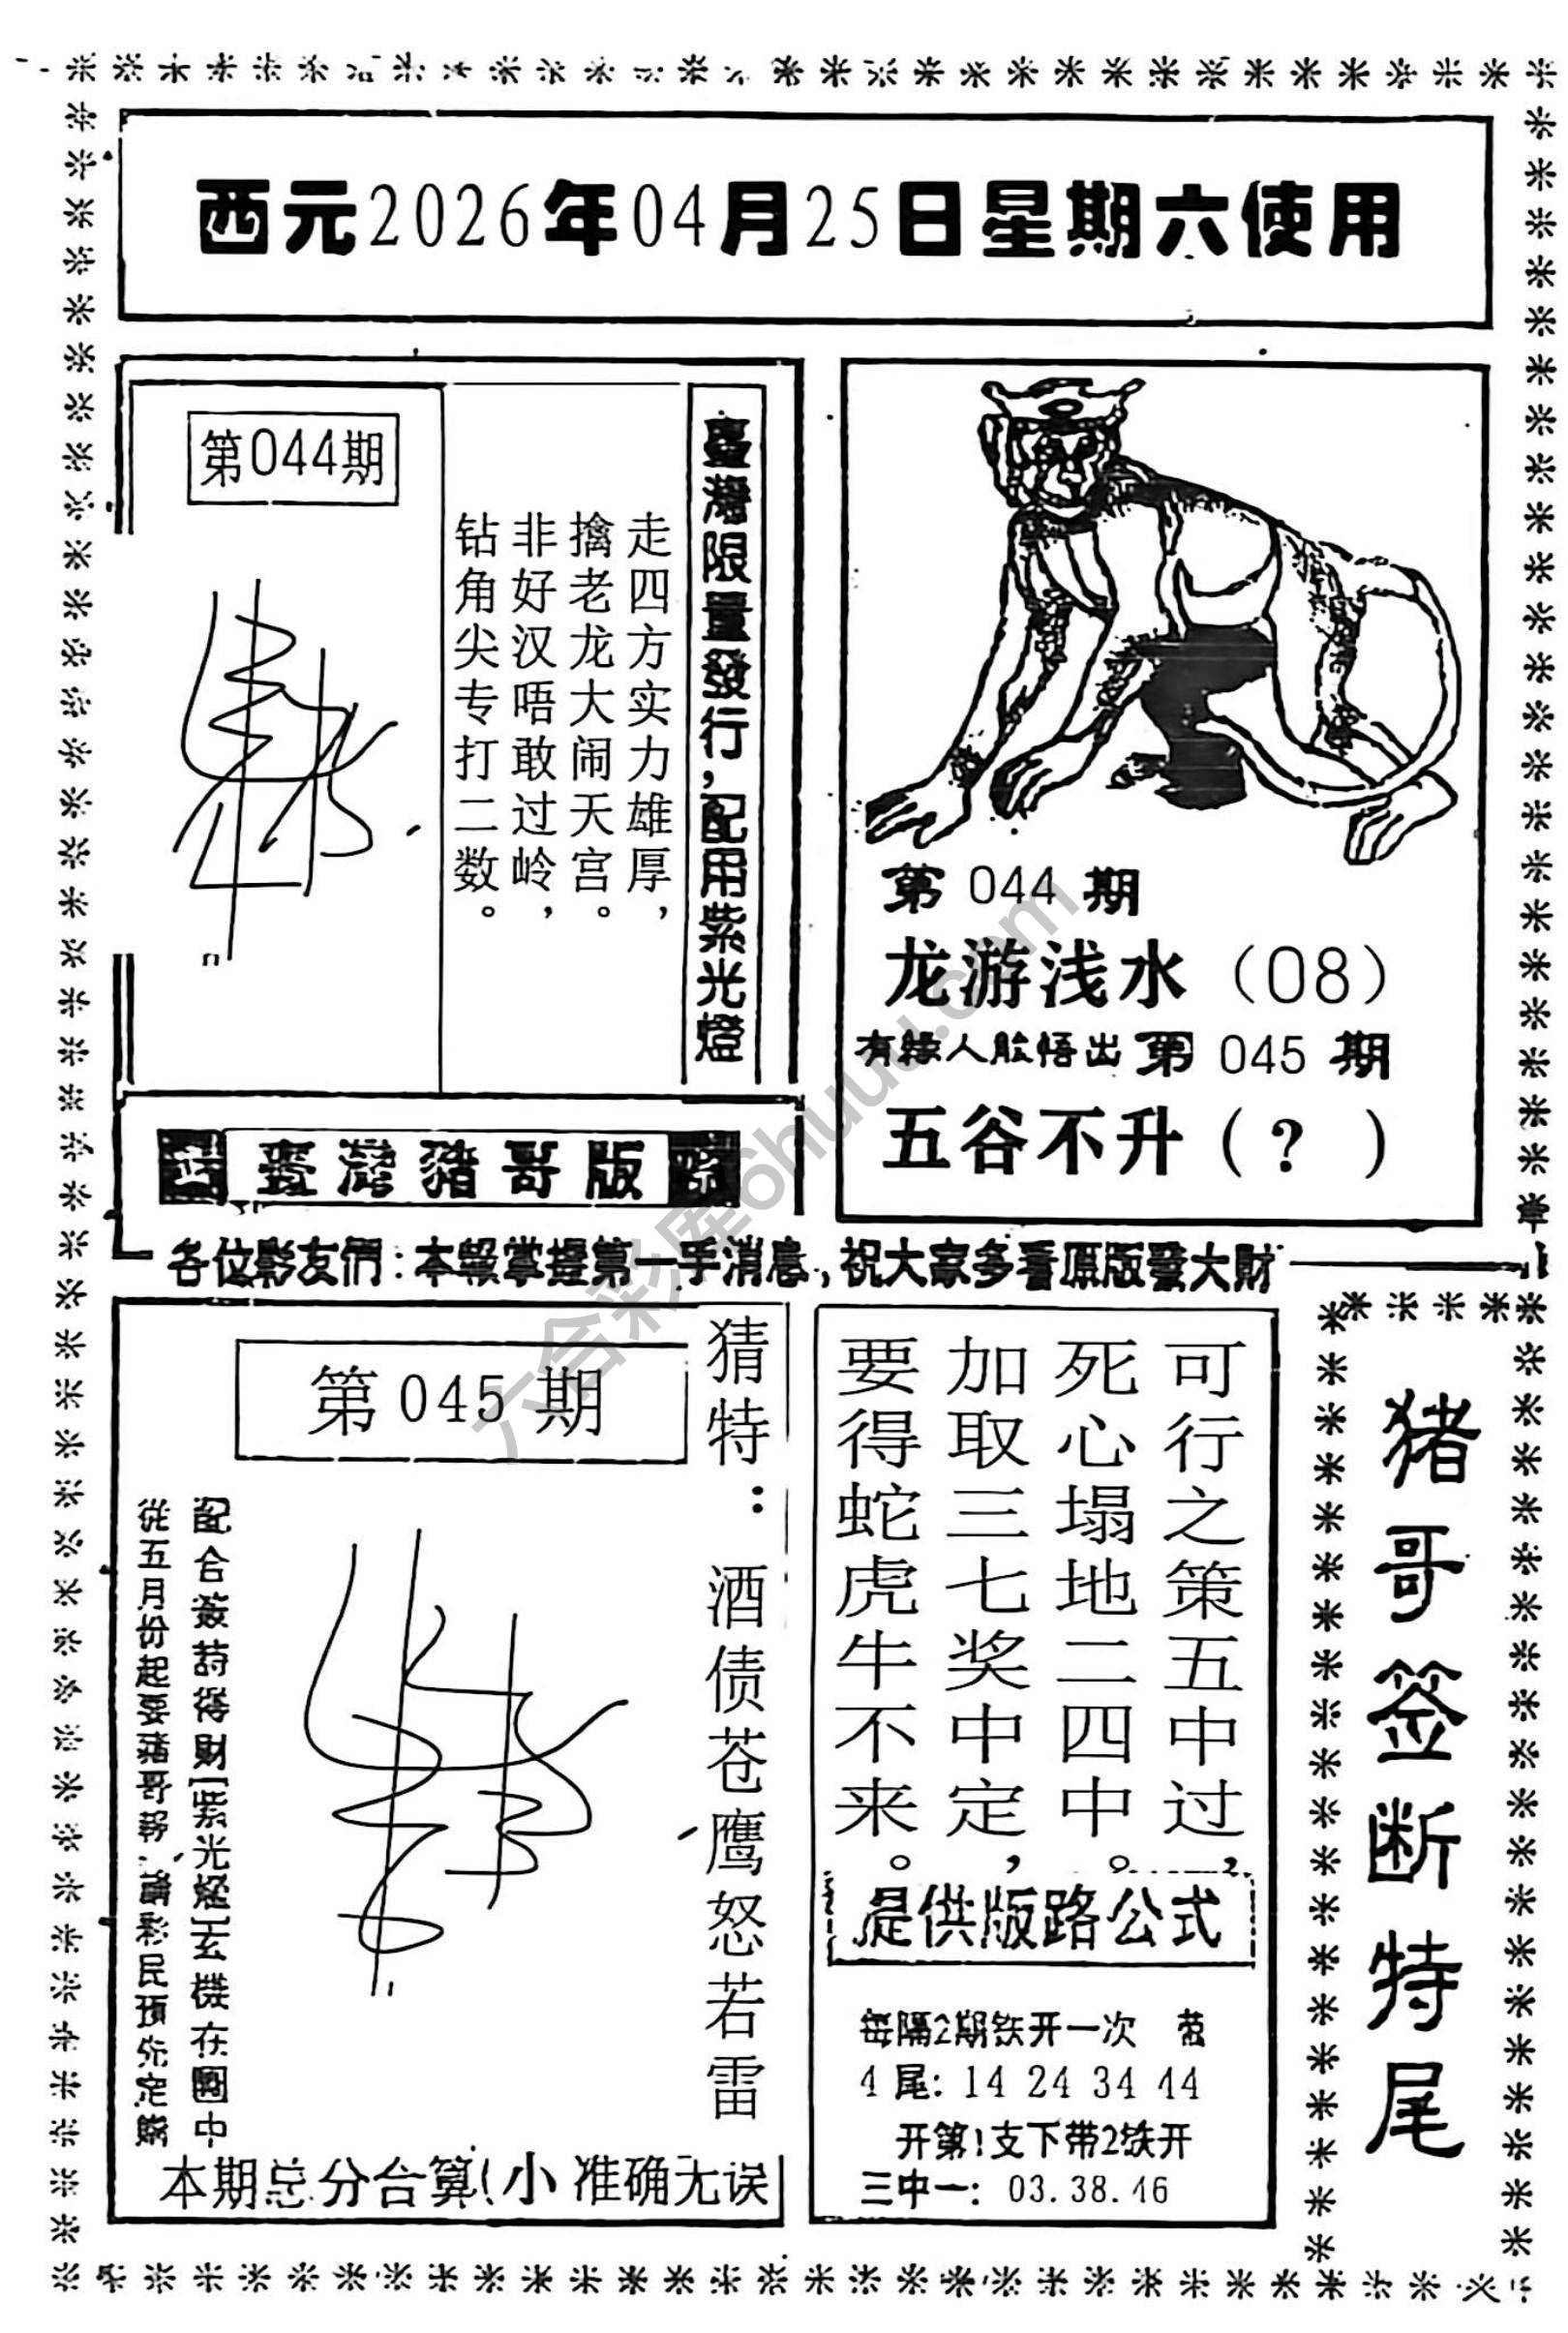 西元2026年04月25日星期六使用
第044期
臺灣限量發行，配用紫光燈
走四方实力雄厚，
擒老龙大闹天宫。
非好汉唔敢过岭，
钻角尖专打二数。
臺灣豬哥版
第 044 期
龙游浅水（08）
有缘人能悟出 第 045 期
五谷不升（？）
各位彩友們：本報掌握第一手消息，祝大家多看原版發大財
第 045 期
猜特：酒债苍鹰怒若雷
配合簽詩得財[紫光燈]玄機在圖中
從五月份起要豬哥報，請彩民預先定購
本期总分合算(小 准确无误
可行之策五中过，
死心塌地二四中。
加取三七奖中定，
要得蛇虎牛不来。
提供版路公式
每隔2期铁开一次
4尾：14 24 34 44
开第1支下带2铁开
三中一：03.38.46
猪哥签断特尾
六合彩库6huuu.com